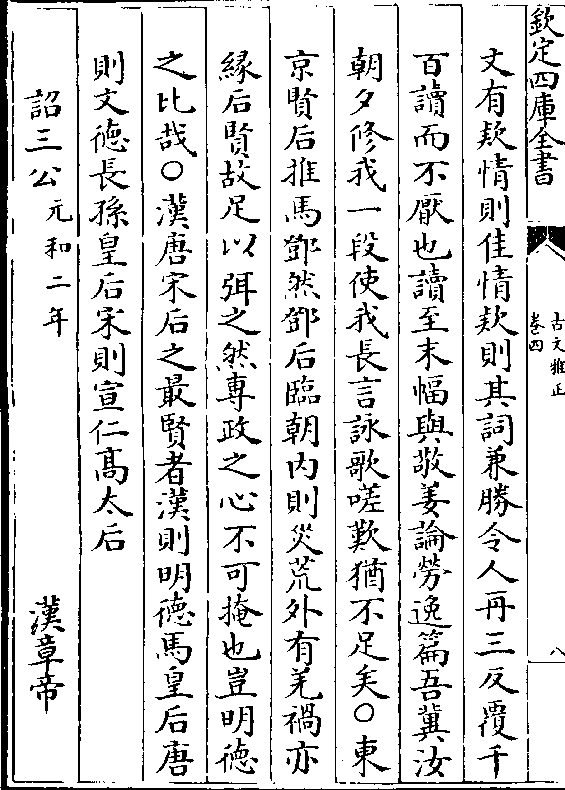 欽定四庫全書
古文雅正
卷四
八
文有欵情則佳情欵則其詞兼勝令人再三反覆千
百讀而不厭也讀至末幅與敬姜論勞逸篇吾冀汝
朝夕修我一段使我長言詠歌嗟歎猶不足矣○東
京賢后推馬鄧然鄧后臨朝内則災荒外有羌禍亦
縁后賢故足以弭之然專政之心不可掩也豈明德
之比哉○漢唐宋后之最賢者漢則明德馬皇后唐
則文德長孫皇后宋則宣仁髙太后
詔三公元和二年 漢章帝